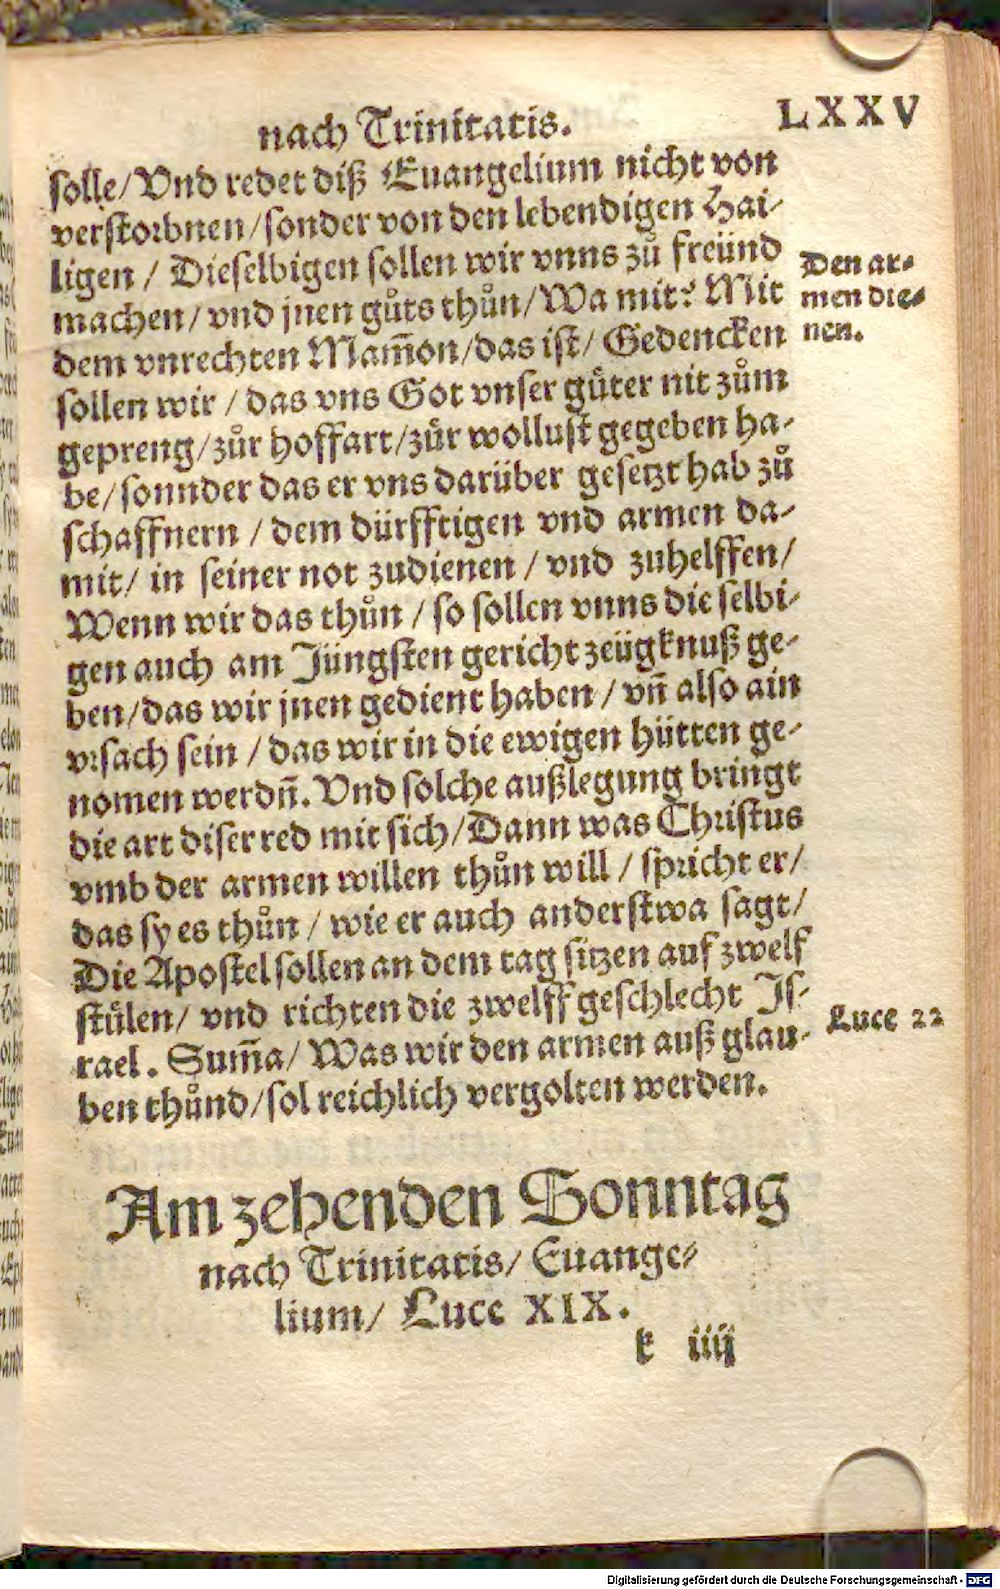 nach Trinitatis.
LXXV
solle/Vnd redet diß Euangelium nicht von
verstorbnen/sonder von den lebendigen Hai-
ligen / Dieselbigen sollen wir vnns zů freünd
machen/vnd jnen gůts thůn/Wa mit? Mit
dem vnrechten Mam̄on/das ist/ Gedencken
sollen wir / das vns Got vnser gůter nit zům
gepreng/zůr hoffart/zůr wollust gegeben ha-
be/sonnder das er vns darüber gesetzt hab zů
schaffnern / dem dürfftigen vnd armen da-
mit/ in seiner not zudienen / vnd zuhelffen/
Wenn wir das thůn / so sollen vnns die selbi-
gen auch am Jüngsten gericht zeügknuß ge-
ben/das wir jnen gedient haben / vn̄ also ain
vrsach sein / das wir in die ewigen hütten ge-
nomen werdn̄. Vnd solche außlegung bringt
die art diser red mit sich/Dann was Christus
vmb der armen willen thůn will / spricht er/
das sy es thůn / wie er auch anderstwa sagt/
Die Apostel sollen an dem tag sitzen auf zwelf
stůlen/ vnd richten die zwelff geschlecht Js-
rael. Sum̄a/ Was wir den armen auß glau-
ben thůnd/sol reichlich vergolten werden.
Den ar-
men die-
nen.
Luce 22
Am zehenden Sonntag
nach Trinitatis/ Euange-
lium/ Luce XIX.
k iiij
Digitalisierung gefördert durch die Deutsche Forschungsgemeinschaft - DFG